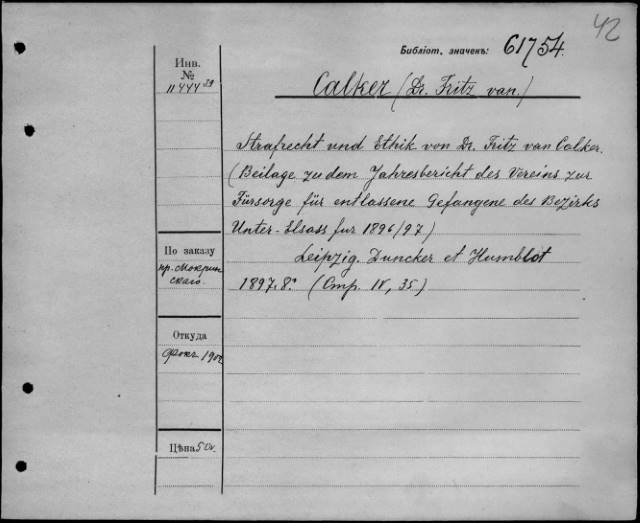 42
Библіот. значекъ: 61754.
Инв.
№
11444 29
Calker (Dr. Fritz van.)
Strafrecht und Ethik von Dr. Fritz van Calker.
(Beilage zu dem Jahresbericht des Vereins zur
Fürsorge für entlassene Gefangene des Bezirks
Unter-Elsass fur 1896/97)
Leipzig. Duncker et Humblot
1897. 8.° (Стр. IV, 35)
По заказу
пр. Мокрин
скаго.
Откуда
1902
Цѣна 50